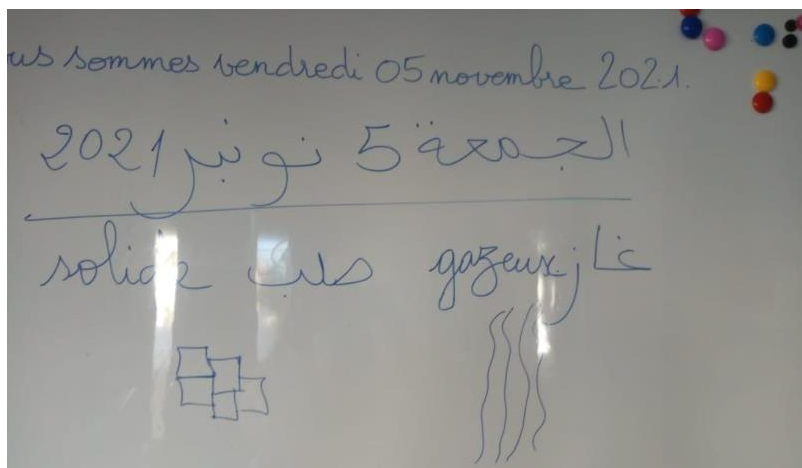 us sommes vendredi 05 novembre 2021.
الجمعة 5 نونبر 2021
solide صلب gazeux غاز